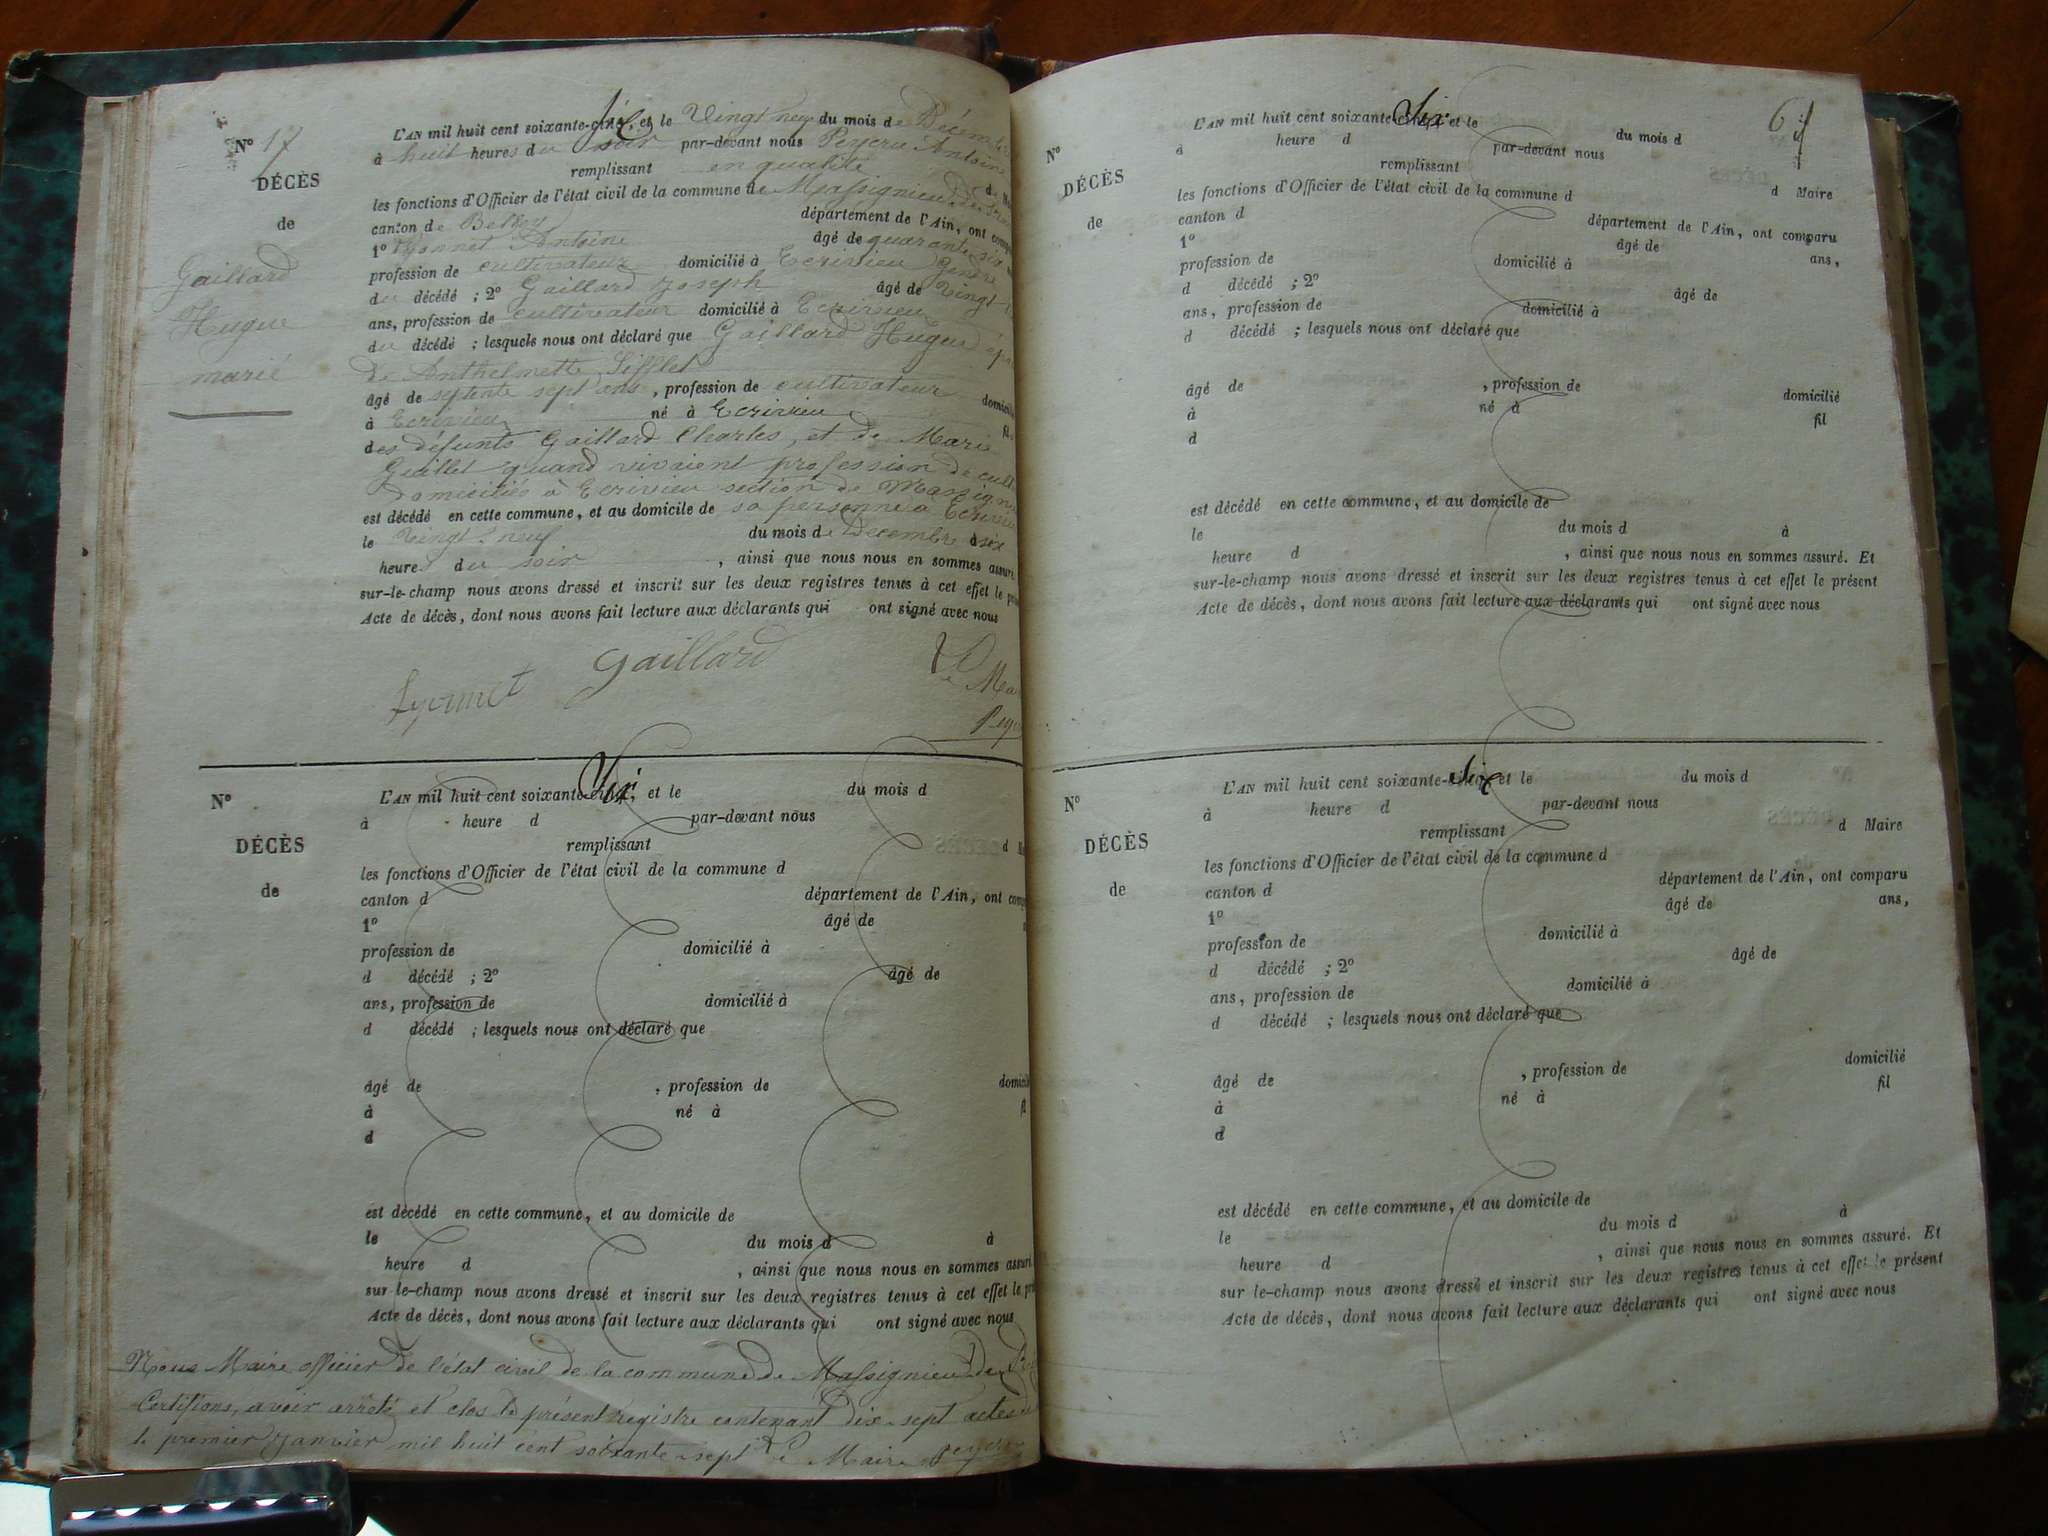 N° 17
DÉCÈS
de
Gaillard
Hugue
marié
L'AN mil huit cent soixante-six, et le Vingt neuf du mois de Décembre
à huit heures du soir par-devant nous Peycru Antoine
remplissant en qualité de
les fonctions d'Officier de l'état civil de la commune de Massignieu de
canton de Belley département de l'Ain, ont
1° Antoine âgé de quarante six
profession de cultivateur domicilié à Ecrivieu gendre
du décédé ; 2° Gaillard Joseph âgé de Vingt
ans, profession de cultivateur domicilié à Ecrivieu
du décédé ; lesquels nous ont déclaré que Gaillard Hugue
de Anthelmette Sifflet
âgé de septente sept ans, profession de cultivateur
à Ecrivieu né à Ecrivieu
des défunts Gaillard Charles, et de Marie
Guillet quand vivaient profession de
domiciliés à Ecrivieu section de
est décédé en cette commune, et au domicile de sa personne à Ecrivieu
le Vingt-neuf du mois de Décembre à six
heures du soir, ainsi que nous nous en sommes assuré
sur-le-champ nous avons dressé et inscrit sur les deux registres tenus à cet effet le
Acte de décès, dont nous avons fait lecture aux déclarants qui ont signé avec nous
Gaillard
N°
DÉCÈS
de
L'AN mil huit cent soixante-six, et le du mois d
à heure d par-devant nous
remplissant d
les fonctions d'Officier de l'état civil de la commune d
canton d département de l'Ain, ont
1° âgé de
profession de domicilié à
d décédé ; 2° âgé de
ans, profession de domicilié à
d décédé ; lesquels nous ont déclaré que
âgé de , profession de
à né à
d
est décédé en cette commune, et au domicile de
le du mois d à
heure d , ainsi que nous nous en sommes assuré
sur-le-champ nous avons dressé et inscrit sur les deux registres tenus à cet effet le
Acte de décès, dont nous avons fait lecture aux déclarants qui ont signé avec nous
Nous Maire officier de l'état civil de la commune de Massignieu de
Certifions, avoir arrêté et clos le présent registre contenant dix-sept actes
le premier Janvier mil huit cent soixante-sept Le Maire
6
N°
DÉCÈS
de
L'AN mil huit cent soixante Six et le du mois d
à heure d par-devant nous
remplissant d Maire
les fonctions d'Officier de l'état civil de la commune d
canton d département de l'Ain, ont comparu
1° âgé de ans,
profession de domicilié à
d décédé ; 2° âgé de
ans, profession de domicilié à
d décédé ; lesquels nous ont déclaré que
âgé de , profession de domicilié
à né à fil
d
est décédé en cette commune, et au domicile de
le du mois d à
heure d , ainsi que nous nous en sommes assuré. Et
sur-le-champ nous avons dressé et inscrit sur les deux registres tenus à cet effet le présent
Acte de décès, dont nous avons fait lecture aux déclarants qui ont signé avec nous
N°
DÉCÈS
de
L'AN mil huit cent soixante-Six et le du mois d
à heure d par-devant nous
remplissant d Maire
les fonctions d'Officier de l'état civil de la commune d
canton d département de l'Ain, ont comparu
1° âgé de ans,
profession de domicilié à
d décédé ; 2° âgé de
ans, profession de domicilié à
d décédé ; lesquels nous ont déclaré que
âgé de , profession de domicilié
à né à fil
d
est décédé en cette commune, et au domicile de
le du mois d à
heure d , ainsi que nous nous en sommes assuré. Et
sur-le-champ nous avons dressé et inscrit sur les deux registres tenus à cet effet le présent
Acte de décès, dont nous avons fait lecture aux déclarants qui ont signé avec nous